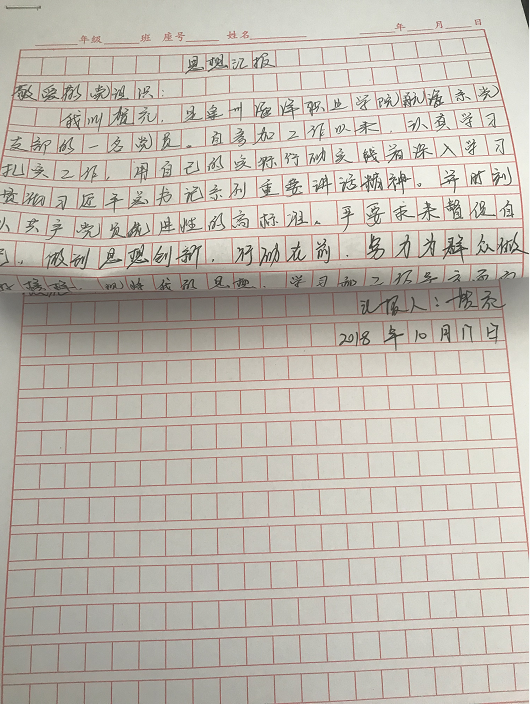 年级 班 座号 姓名 年 月 日
思想汇报
敬爱的党组织:
我叫 , 是泉州海洋职业学院航海系党
支部的一名党员。自参加工作以来, 认真学习
扎实工作, 用自己的实际行动实践着深入学习
贯彻习近平总书记系列重要讲话精神。并时刻
以共产党员先进性的高标准、严要求来督促自
己, 做到思想创新, 行动在前, 努力为群众做
我的思想、学习和工作
汇报人:
2018年10月17日